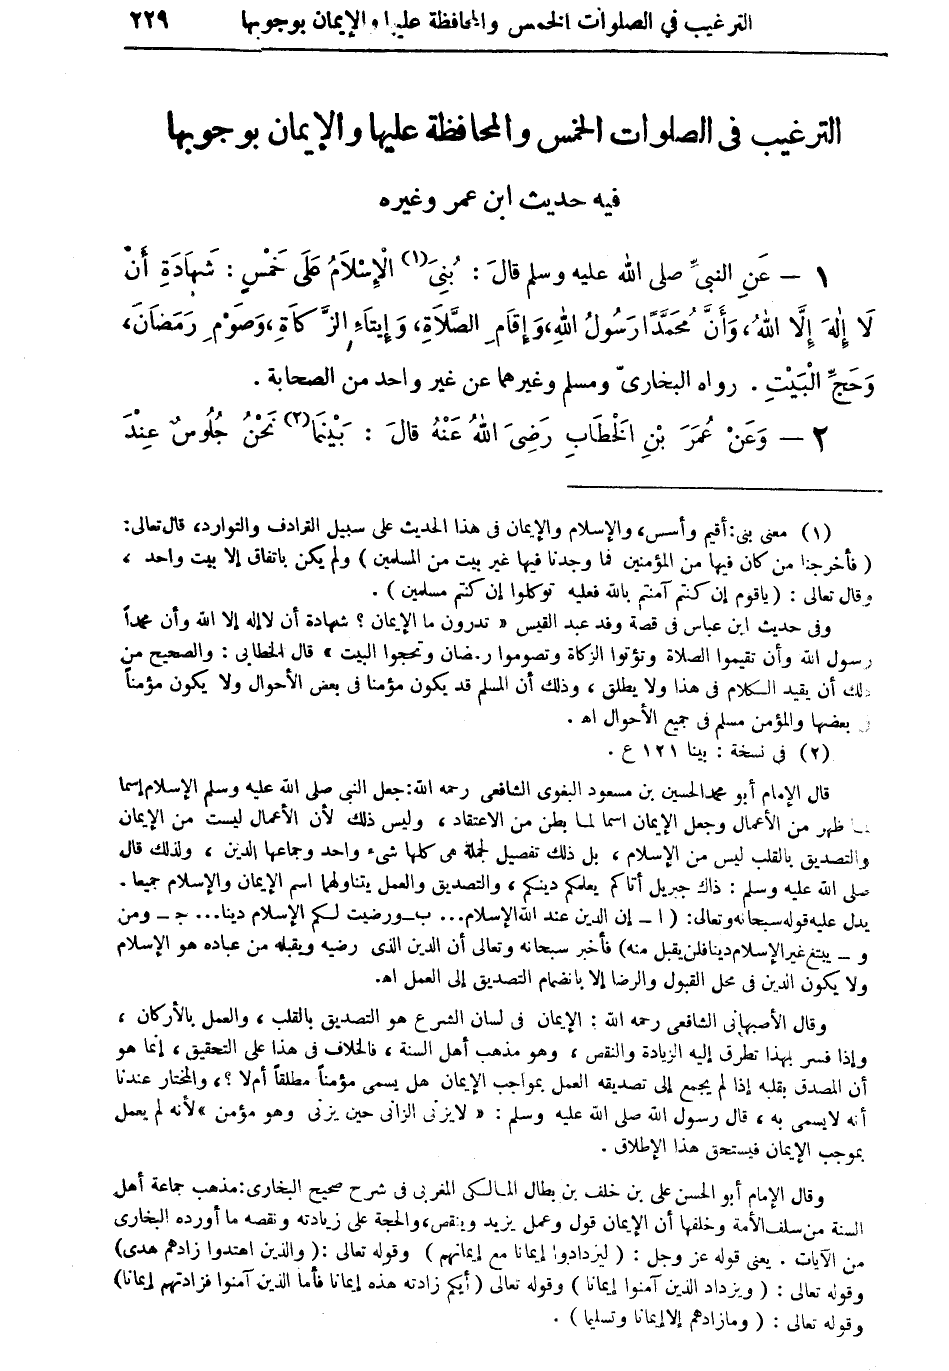 الترغيب في الصلوات الخمس والمحافظة عليها والإيمان بوجوبها ٢٢٩
الترغيب فى الصلوات الخمس والمحافظة عليها والإيمان بوجوبها
فيه حديث ابن عمر وغيره
١ — عَنِ النبىِّ صلى الله عليه وسلم قالَ : بُنِىَ(١) الْإِسْلاَمُ عَلَى خَمْسٍ : شَهَادَةِ أَنْ
لَا إِلٰهَ إِلَّا اللهُ، وَأَنَّ مُحَمَّدًا رَسُولُ اللهِ، وَإِقَامِ الصَّلاَةِ، وَإِيتَاءِ الزَّكاَةِ، وَصَوْمِ رَمَضَانَ،
وَحَجِّ الْبَيْتِ . رواه البخارىّ ومسلم وغيرهما عن غير واحد من الصحابة .
٢ — وَعَنْ عُمَرَ بْنِ الْخَطَّابِ رَضِىَ اللهُ عَنْهُ قالَ : بَيْنَمَا(٢) نَحْنُ جُلُوسٌ عِنْدَ
(١) معنى بنى: أقيم وأسس، والإسلام والإيمان فى هذا الحديث على سبيل الترادف والتوارد، قال تعالى:
( فأخرجنا من كان فيها من المؤمنين فما وجدنا فيها غير بيت من المسلمين ) ولم يكن باتفاق إلا بيت واحد ،
وقال تعالى : ( ياقوم إن كنتم آمنتم بالله فعليه توكلوا إن كنتم مسلمين ) .
وفى حديث ابن عباس فى قصة وفد عبد القيس « تدرون ما الإيمان ؟ شهادة أن لاإله إلا الله وأن محمداً
رسول الله وأن تقيموا الصلاة وتؤتوا الزكاة وتصوموا رمضان وتحجوا البيت » قال الخطابى : والصحيح من
ذلك أن يقيد الكلام فى هذا ولا يطلق ، وذلك أن المسلم قد يكون مؤمنا فى بعض الأحوال ولا يكون مؤمناً
فى بعضها والمؤمن مسلم فى جميع الأحوال اه .
(٢) فى نسخة : بينا ١٢١ ع .
قال الإمام أبو محمد الحسين بن مسعود البغوى الشافعى رحمه الله: جعل النبى صلى الله عليه وسلم الإسلام إسما
لما ظهر من الأعمال وجعل الإيمان اسما لما بطن من الاعتقاد ، وليس ذلك لأن الأعمال ليست من الإيمان
والتصديق بالقلب ليس من الإسلام ، بل ذلك تفصيل لجملة هى كلها شىء واحد وجماعها الدين ، ولذلك قال
صلى الله عليه وسلم : ذاك جبريل أتاكم يعلمكم دينكم ، والتصديق والعمل يتناولهما اسم الإيمان والإسلام جميعا .
يدل عليه قوله سبحانه وتعالى: ( ا ـ إن الدين عند الله الإسلام... ب ـ ورضيت لكم الإسلام دينا... ج ـ ومن
و ـ يبتغ غير الإسلام دينا فلن يقبل منه) فأخبر سبحانه وتعالى أن الدين الذى رضيه ويقبله من عباده هو الإسلام
ولا يكون الدين فى محل القبول والرضا إلا بانضمام التصديق إلى العمل اهـ.
وقال الأصبهانى الشافعى رحمه الله : الإيمان فى لسان الشرع هو التصديق بالقلب ، والعمل بالأركان ،
وإذا فسر بهذا تطرق إليه الزيادة والنقص ، وهو مذهب أهل السنة ، فالخلاف فى هذا على التحقيق ، إنما هو
أن المصدق بقلبه إذا لم يجمع إلى تصديقه العمل بمواجب الإيمان هل يسمى مؤمناً مطلقاً أم لا ؟، والمختار عندنا
أنه لايسمى به ، قال رسول الله صلى الله عليه وسلم : « لايزنى الزانى حين يزنى وهو مؤمن » لأنه لم يعمل
بموجب الإيمان فيستحق هذا الإطلاق .
وقال الإمام أبو الحسن على بن خلف بن بطال المالكى المغربى فى شرح صحيح البخارى: مذهب جماعة أهل
السنة من سلف الأمة وخلفها أن الإيمان قول وعمل يزيد وينقص، والحجة على زيادته ونقصه ما أورده البخارى
من الآيات . يعنى قوله عز وجل : ( ليزدادوا إيمانا مع إيمانهم ) وقوله تعالى :( والذين اهتدوا زادهم هدى)
وقوله تعالى : ( ويزداد الذين آمنوا إيمانا ) وقوله تعالى ( أيكم زادته هذه إيمانا فأما الذين آمنوا فزادتهم إيمانا)
وقوله تعالى : ( ومازادهم إلا إيمانا وتسليما ) .